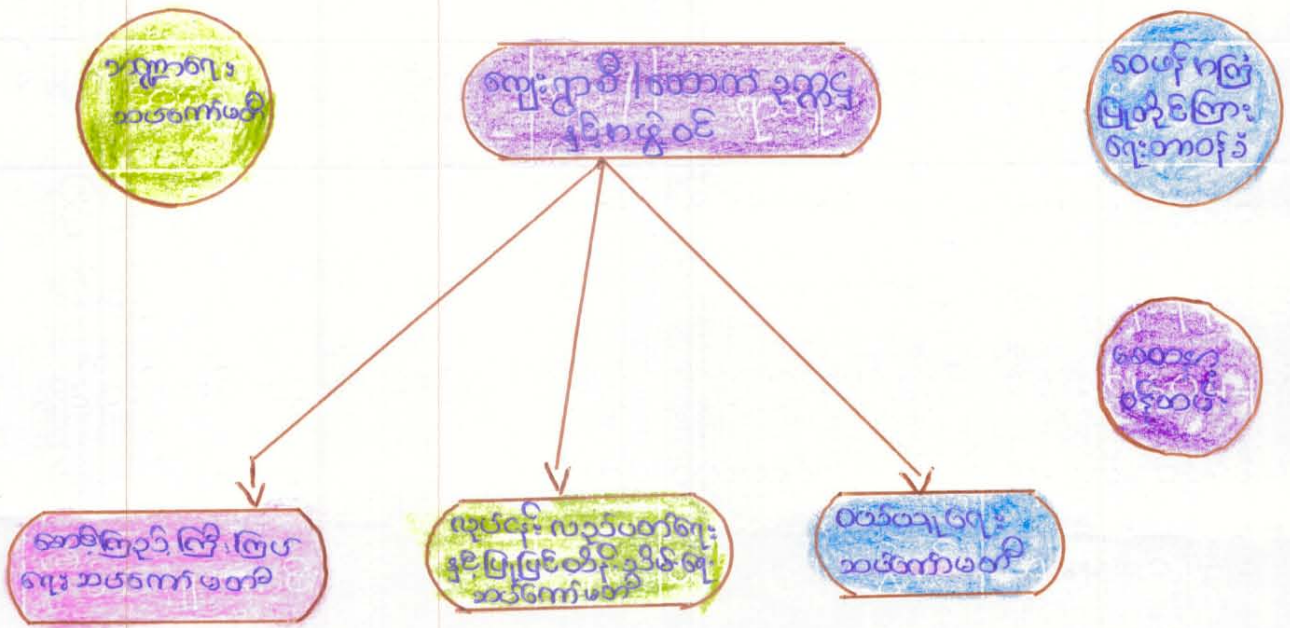 ဘဏ္ဍာရေး
ဆပ်ကော်မတီ
ကျေးရွာစီ/ထောက ဥက္ကဋ္ဌ
နှင့်အဖွဲ့ဝင်
ဝေဖန်အကြံ
ပြုတိုင်ကြား
ရေးတာဝန်ခံ
စေတနာ့
ဝန်ထမ်း
စောင့်ကြည့်ကြီးကြပ်
ရေးဆပ်ကော်မတီ
လုပ်ငန်းလည်ပတ်ရေး
နှင့်ပြုပြင်ထိန်းသိမ်းရေး
ဆပ်ကော်မတီ
ဝယ်ယူရေး
ဆပ်ကော်မတီ